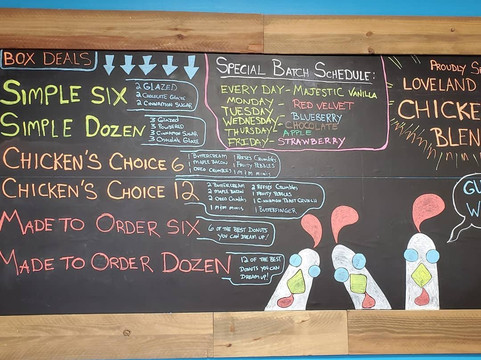 BOX DEALS
SIMPLE SIX
2 GLAZED
2 CHOCOLATE GLAZE
2 CINNAMON SUGAR
SIMPLE DOZEN
3 GLAZED
3 POWDERED
3 CINNAMON SUGAR
3 CHOCOLATE GLAZE
CHICKEN'S CHOICE 6
1 BUTTERCREAM
1 MAPLE BACON
1 OREO CRUMBLE
1 REESES CRUMBLE
1 FRUITY PEBBLES
1 M&M MINIS
CHICKEN'S CHOICE 12
2 BUTTERCREAM
2 MAPLE BACON
2 OREO CRUMBLE
1 M&M MINI
2 REESES CRUMBLE
2 FRUITY PEBBLES
1 CINNAMON TOAST CRUNCH
1 BUTTERFINGER
MADE TO ORDER SIX
6 OF THE BEST DONUTS
YOU CAN DREAM UP!
MADE TO ORDER DOZEN
12 OF THE BEST
DONUTS YOU CAN
DREAM UP!
SPECIAL BATCH SCHEDULE:
EVERY DAY - MAJESTIC VANILLA
MONDAY - RED VELVET
TUESDAY -
WEDNESDAY - BLUEBERRY
THURSDAY - CHOCOLATE
APPLE
FRIDAY - STRAWBERRY
PROUDLY S
LOVELAND
CHICKE
BLEN